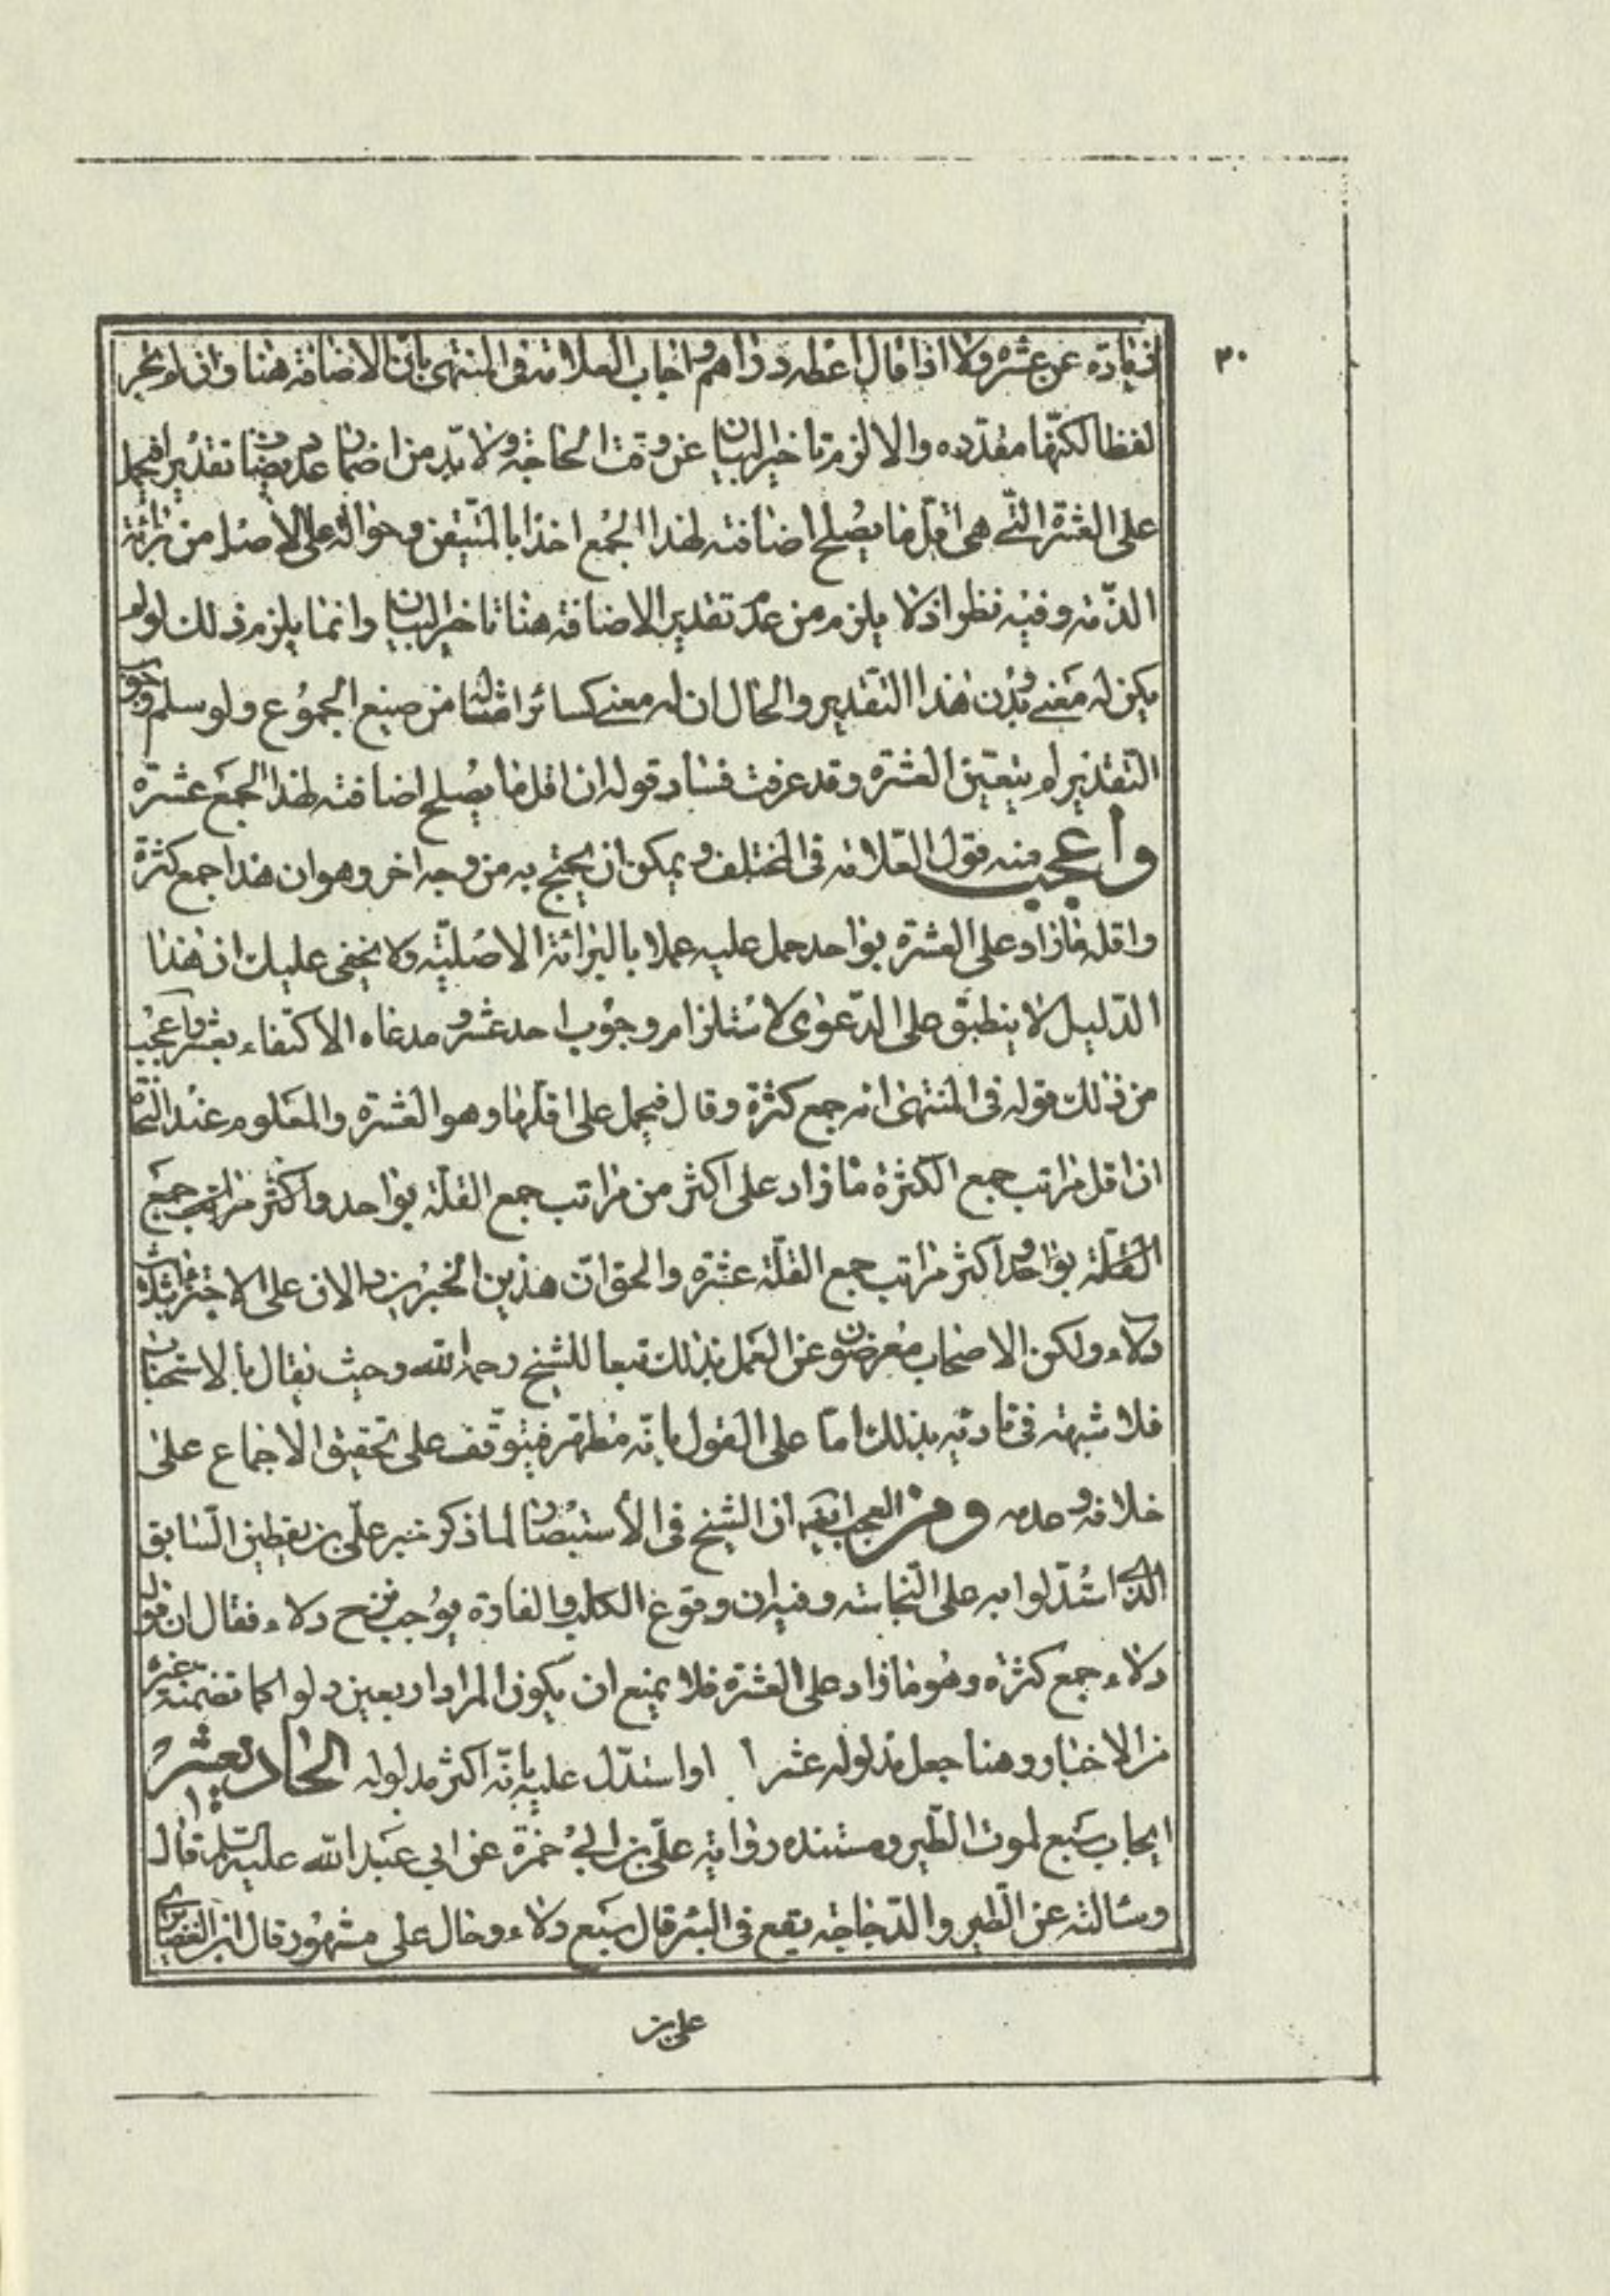 ٣٠
زيادته عن عشره ولا اذا قال اعطه دراهم واجاب العلامة فى المنتهى بان الاضافة هنا وان لم يجر
لفظا لكنها مقدره والا لزم تاخير البيان عن وقت الحاجة ولا بد من اضمار عدد يضاف تقديرا فيحمل
على العشرة التي هى اقل ما يصلح اضافته لهذا الجمع اخذا بالمتيقن وحوالة على الاصل من برائة
الذمه وفيه نظر اذ لا يلزم من عدم تقدير الاضافة هنا تاخير البيان وانما يلزم ذلك لو لم
يكن له معنى بدون هذا التقدير والحال ان له معنى كسائر امثاله من صيغ الجموع ولو سلم وجوب
التقدير لم يتعين العشره وقد عرفت فساد قوله ان اقل ما يصلح اضافته لهذا الجمع عشرة
واعجب منه قول العلامة فى المختلف ويمكن ان يحتج به من وجه اخر وهو ان هذا جمع كثرة
واقله ما زاد على العشرة بواحد حمل عليه عملا بالبرائة الاصلية ولا يخفى عليك ان هذا
الدليل لا ينطبق على الدعوى لاستلزامه وجوب احد عشر ومدعاه الاكتفاء بعشر واعجب
من ذلك قوله فى المنتهى انه جمع كثرة وقال فيحمل على اقلها وهو العشرة والمعلوم عند النحاة
ان اقل مراتب جمع الكثرة ما زاد على اكثر من مراتب جمع القلة بواحد واكثر مراتب جمع
القلة بواحد واكثر مراتب جمع القلة عشرة والحق ان هذين الخبرين دالان على الاجتزاء بثلاث
دلاء ولكن الاصحاب معرضون عن العمل بذلك تبعا للشيخ رحمه الله وحيث يقال بالاستحباب
فلا شبهة فى تاديه بذلك اما على القول بانه مطهر فيتوقف على تحقيق الاجماع على
خلافه وعدمه ومن العجب ايضا ان الشيخ فى الاستبصار لما ذكر خبر على بن يقطين السابق
الذى استدلوا به على النجاسة وفيه ان وقوع الكلب والفارة يوجب نزح دلاء فقال ان قوله
دلاء جمع كثرة وهو ما زاد على العشرة فلا يمنع ان يكون المراد اربعين دلوا كما تضمنته غيره
من الاخبار وهنا جعل مدلوله عشرا او استدل عليه بانه اكثر مدلوله الحاديعشر
ايجاب سبع لموت الطير ومستنده رواية على بن ابي حمزة عن ابي عبد الله عليه السلام قال
وسالته عن الطير والدجاجة يقع فى البئر قال سبع دلاء وحال على مشهور قال ابن الغضايرى
على بن